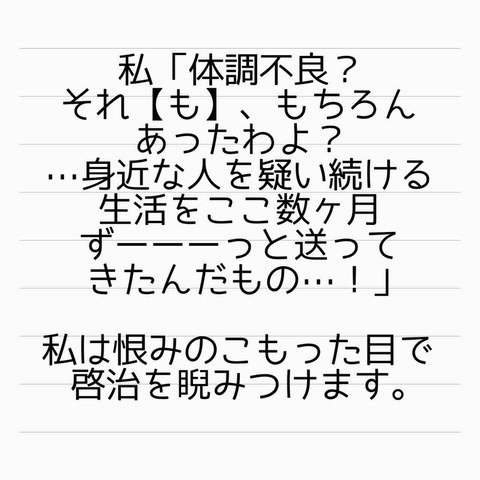 私「体調不良？
それ【も】、もちろん
あったわよ？
…身近な人を疑い続ける
生活をここ数ヶ月
ずーーーっと送って
きたんだもの…！」
私は恨みのこもった目で
啓治を睨みつけます。